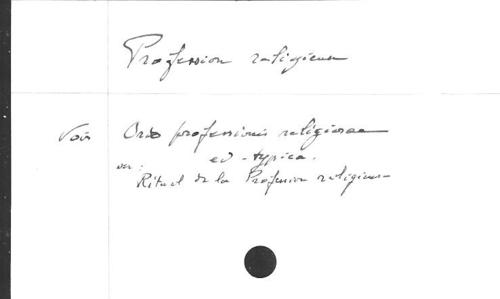 Profession religieuse
Voir Ordo professionis religiosae
ed. typica.
ou :
Rituel de la Profession religieuse